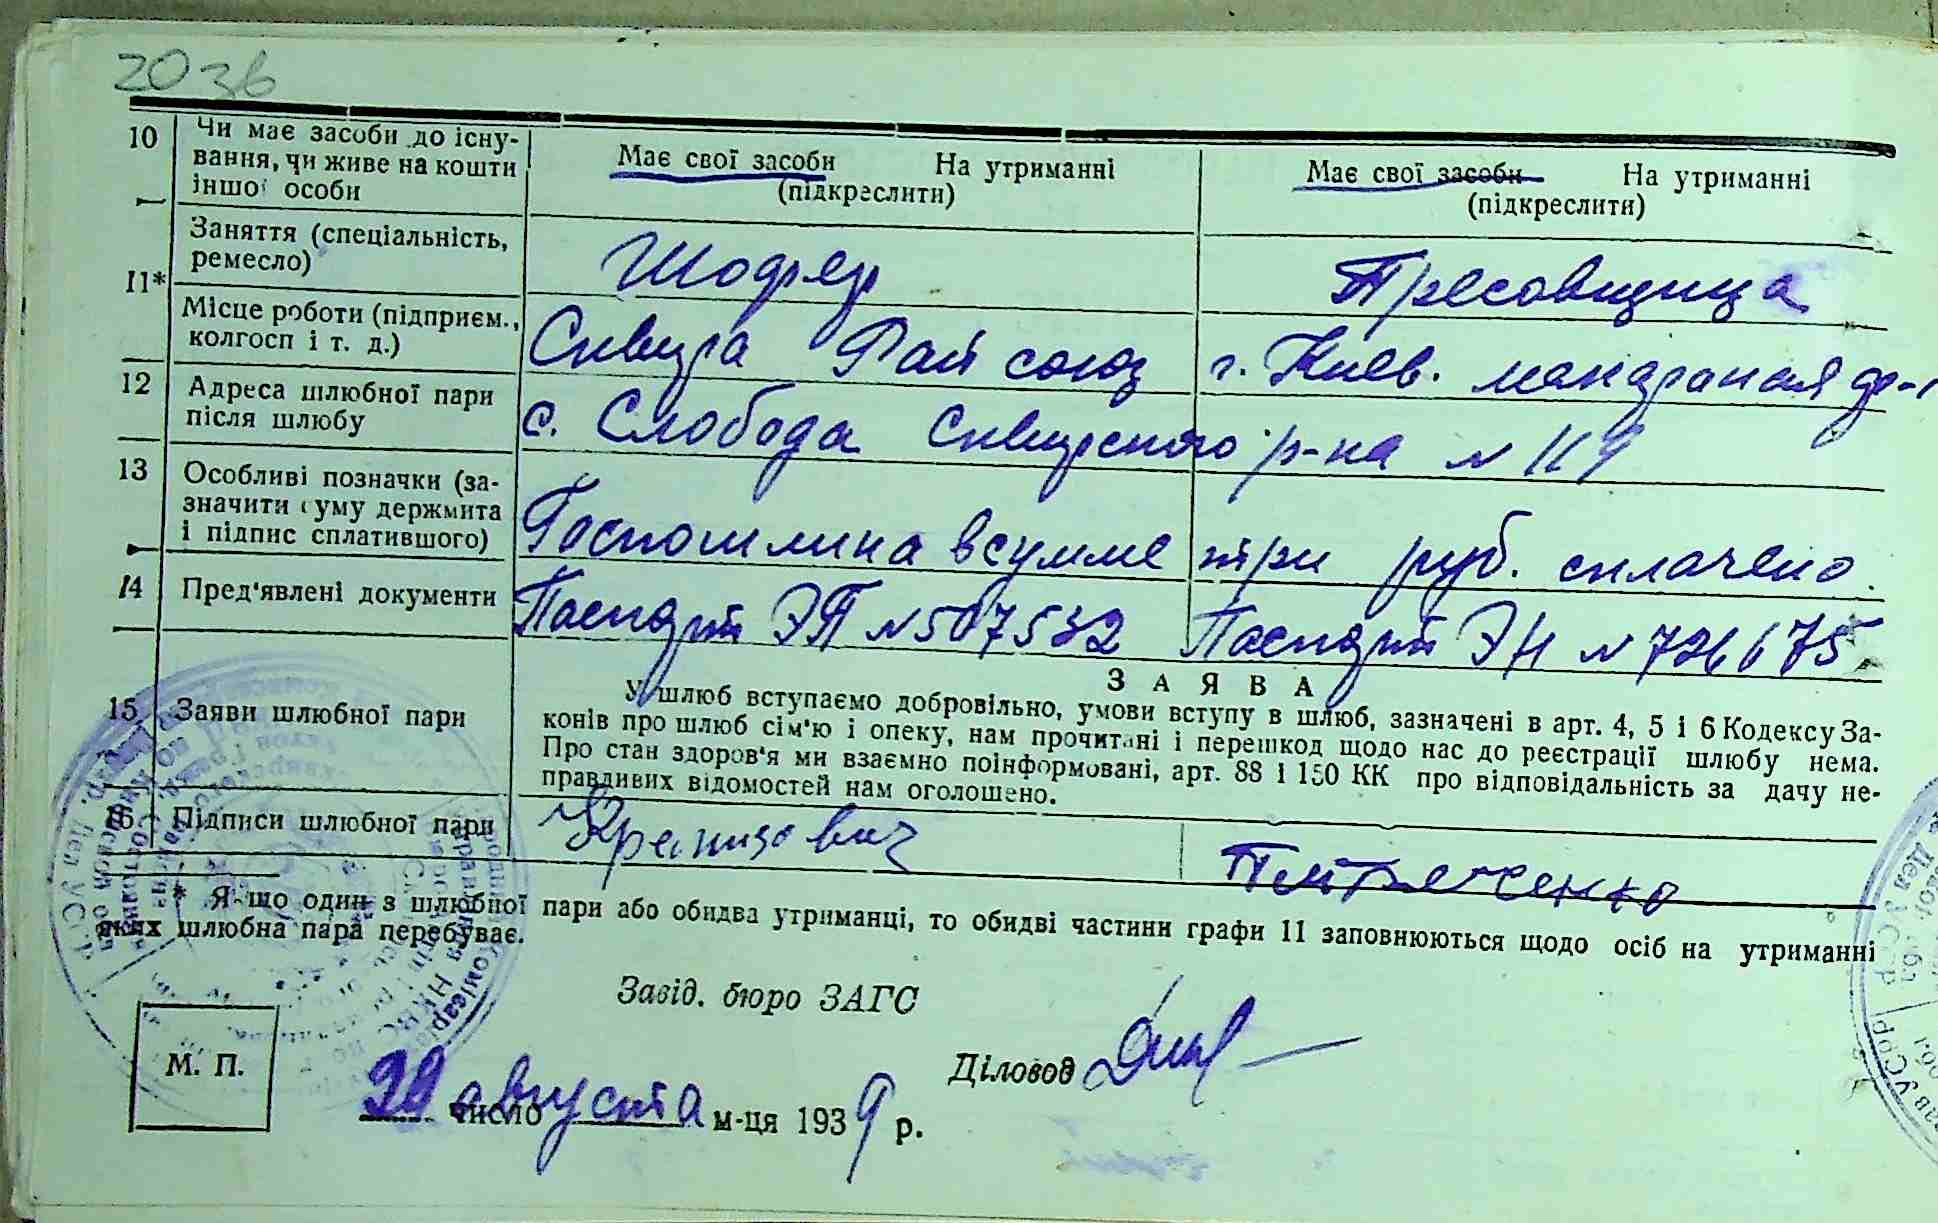 20 зв
10 Чи має засоби до існу-
вання, чи живе на кошти
іншої особи
Має свої засоби На утриманні
(підкреслити)
Має свої засоби На утриманні
(підкреслити)
11* Заняття (спеціальність,
ремесло)
Шофер
Пресовщица
Місце роботи (підприєм.,
колгосп і т. д.)
Сквира Рай союз
г. Киев.
12 Адреса шлюбної пари
після шлюбу
с. Слобода Сквирского р-на N 119
13 Особливі позначки (за-
значити суму держмита
і підпис сплатившого)
Госпошлина в сумме три руб. сплачено.
14 Пред'явлені документи
Паспорт ЭП N 507532 Паспорт ЭН N 726675
15 Заяви шлюбної пари
ЗАЯВА
У шлюб вступаємо добровільно, умови вступу в шлюб, зазначені в арт. 4, 5 і 6 Кодексу За-
конів про шлюб сім'ю і опеку, нам прочитані і перешкод щодо нас до реєстрації шлюбу нема.
Про стан здоров'я ми взаємно поінформовані, арт. 88 і 150 КК про відповідальність за дачу не-
правдивих відомостей нам оголошено.
16. Підписи шлюбної пари
* Якщо один з шлюбної пари або обидва утриманці, то обидві частини графи 11 заповнюються щодо осіб на утриманні
яких шлюбна пара перебуває.
Завід. бюро ЗАГС
М. П.
Діловод
29 число августа м-ця 1939 р.